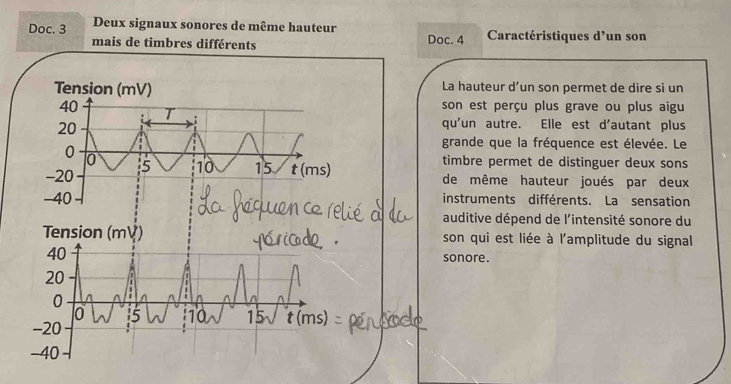 Doc. 3
Deux signaux sonores de même hauteur
mais de timbres différents
Tension (mV)
40
20
0
−20
−40
T
0
5
10
15
t (ms)
La fréquence relié à la
période.
Tension (mV)
40
20
0
−20
−40
0
5
10
15
t (ms) = période
Doc. 4
Caractéristiques d'un son
La hauteur d'un son permet de dire si un
son est perçu plus grave ou plus aigu
qu'un autre. Elle est d'autant plus
grande que la fréquence est élevée. Le
timbre permet de distinguer deux sons
de même hauteur joués par deux
instruments différents. La sensation
auditive dépend de l'intensité sonore du
son qui est liée à l'amplitude du signal
sonore.